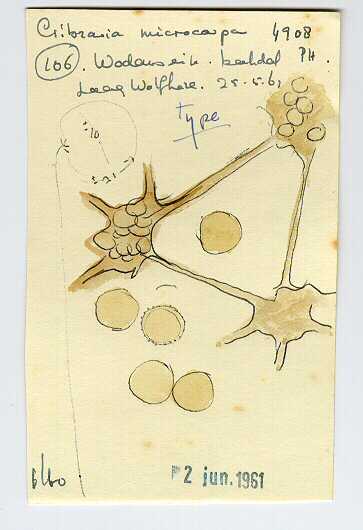 Cribraria microcarpa 4908
106. Wodanseik. kaalkop PH.
Laag Wolfheze. 25.5.61
type
10
21
6/60
2 jun. 1961